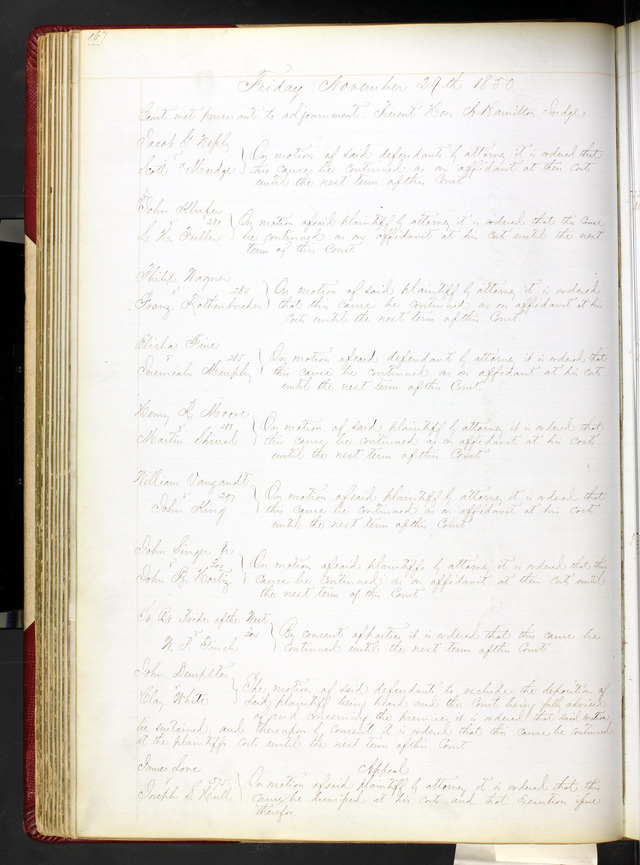 167
Friday November 29th 1850
Court met pursuant to adjournment Present Hon A Hamilton Judge
Jacob
vs
Scott &
On motion of said defendants by attorney it is ordered that
this cause be continued as on affidavit at their cost
until the next term of this Court
John
vs 281
Fuller
On motion of said plaintiff by attorney it is ordered that this cause
be continued as on affidavit at his cost until the next
term of this Court
Philip Wagner
vs 284
Franz
On motion of said plaintiff by attorney it is ordered
that this cause be continued as on affidavit at his
cost until the next term of this Court
Elisha
vs 285
Jeremiah Murphy
On motion of said defendant by attorney it is ordered that
this cause be continued as on affidavit at his cost
until the next term of this Court
Henry L Moore
vs 288
Martin
On motion of said plaintiff by attorney it is ordered that
this cause be continued as on affidavit at his cost
until the next term of this Court
William Vanzandt
vs 297
John King
On motion of said plaintiff by attorney it is ordered that
this cause be continued as on affidavit at his cost
until the next term of this Court
John Singer Jr
vs 302
John B
On motion of said plaintiffs by attorney it is ordered that this
cause be continued as on affidavit at their cost until
the next term of this Court
St Bt Pride of the West
304
W. P. Finch
By consent of parties it is ordered that this cause be
continued until the next term of this Court
John Dempster
vs
Clay White
The motion of said defendant to exclude the deposition of
said plaintiff being heard and the Court being fully advised
of and concerning the premises it is ordered that said motion
be sustained and thereupon by consent it is ordered that this cause be continued
at the plaintiffs costs until the next term of this Court
James Love
vs 277
Joseph S Hull
Appeal
On motion of said plaintiff by attorney it is ordered that this
cause be dismissed at his costs and that Execution issue
therefor